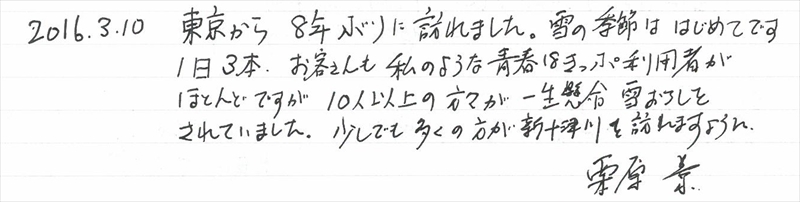 2016.3.10 東京から 8年ぶりに訪れました。雪の季節は はじめてです
1日3本. お客さんも 私のような青春18きっぷ利用者が
ほとんどですが 10人以上の方々が 一生懸命 雪おろしを
されていました。少しでも多くの方が新十津川を訪れますように.
栗原 景